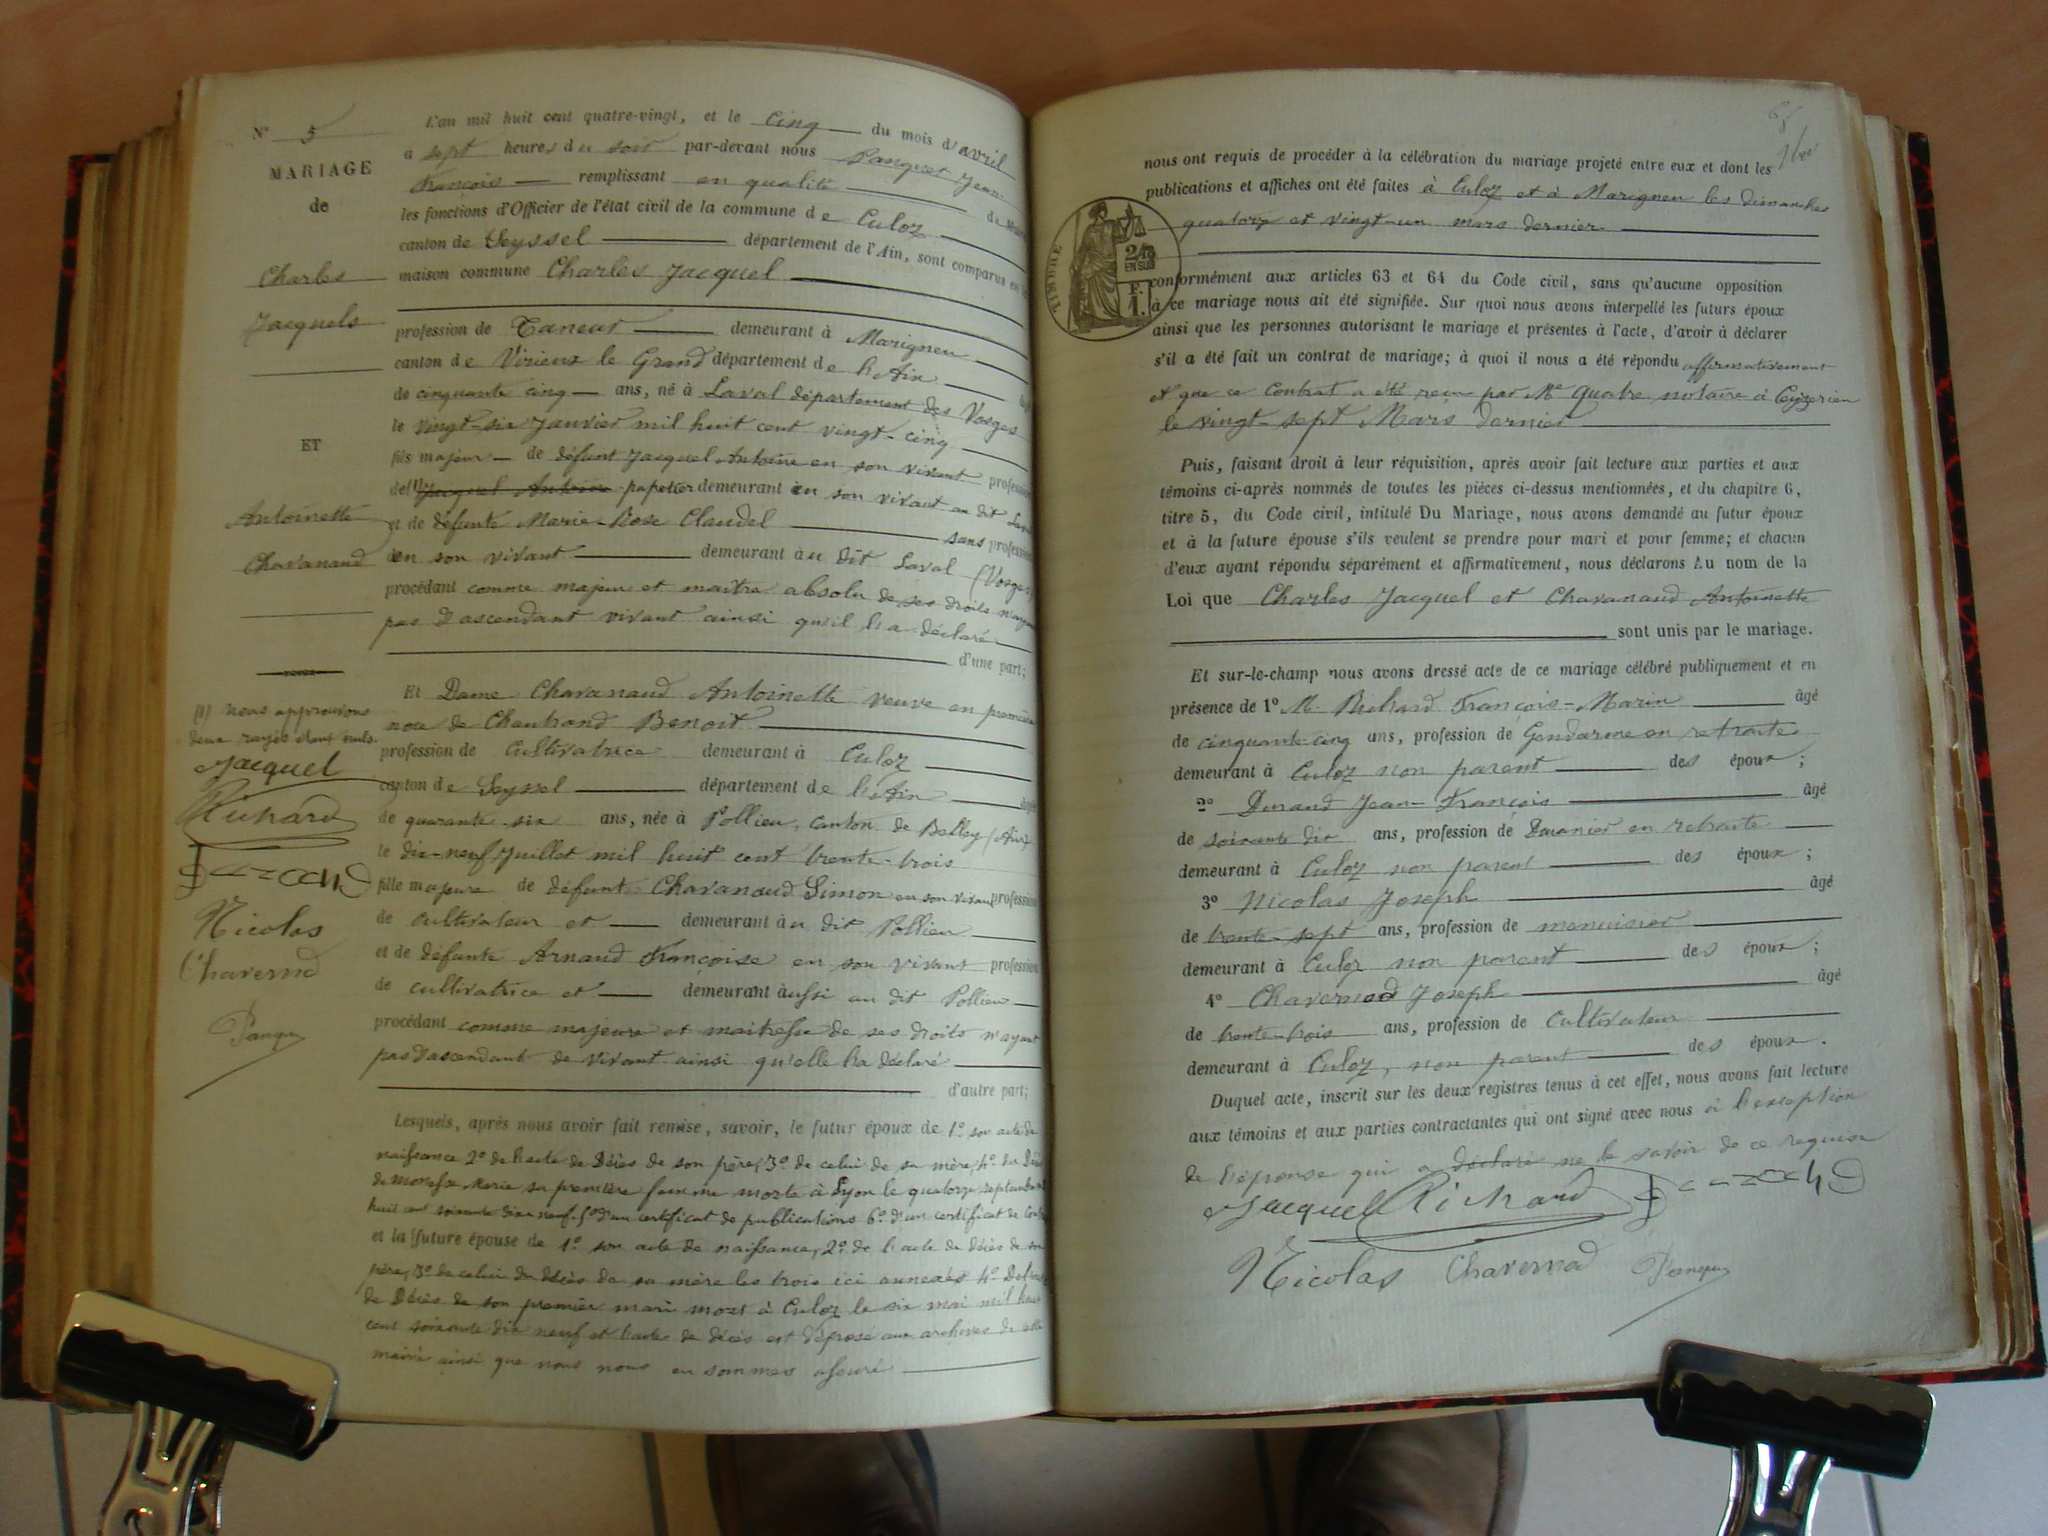 N° 5
MARIAGE
de
Charles
Jacquels
ET
Antoinette
Chavanaud
(1) nous approuvons
deux rayés étant nuls.
Jacquel
Richard
Durand
Nicolas
Chavernod
L'an mil huit cent quatre-vingt, et le Cinq du mois d'avril
a sept heures du soir par-devant nous Jean-
François remplissant en qualité de
les fonctions d'Officier de l'état civil de la commune de Culoz
canton de Seyssel département de l'Ain, sont comparus en la
maison commune Charles Jacquel
profession de Taneur demeurant à Marignieu
canton de Virieux le Grand département de l'Ain
de cinquante cinq ans, né à Laval département des Vosges
le vingt-six Janvier mil huit cent vingt-cinq
fils majeur de défunt Jacquel Antoine en son vivant profession
de (1) Jacquel Antoine papetier demeurant en son vivant au dit Laval
et de défunte Marie-Rose Claudel sans profession
en son vivant demeurant au dit Laval (Vosges)
procédant comme majeur et maître absolu de ses droits n'ayant
pas d'ascendant vivant ainsi qu'il l'a déclaré
d'une part;
Et Dame Chavanaud Antoinette veuve en première
noce de Benoit
profession de Cultivatrice demeurant à Culoz
canton de Seyssel département de l'Ain âgée
de quarante-six ans, née à Pollieu, canton de Belley (Ain)
le dix-neuf Juillet mil huit cent trente-trois
fille majeure de défunt Chavanaud Simon en son vivant profession
de cultivateur et demeurant au dit Pollieu
et de défunte Arnaud Françoise en son vivant profession
de cultivatrice et demeurant aussi au dit Pollieu
procédant comme majeure et maitresse de ses droits n'ayant
pas d'ascendant de vivant ainsi qu'elle l'a déclaré
d'autre part;
Lesquels, après nous avoir fait remise, savoir, le futur époux de 1° son acte de
naissance 2° de l'acte de Décès de son père, 3° de celui de sa mère, 4° du Décès
de Marie sa première femme morte à Lyon le quatorze septembre mil
huit cent soixante dix neuf 5° d'un certificat de publications 6° d'un certificat de
et la future épouse de 1° son acte de naissance, 2° de l'acte de Décès de son
père, 3° de celui de décès de sa mère les trois ici annexés 4°
de Décès de son premier mari mort à Culoz le six mai mil huit
cent soixante dix neuf et l'acte de décès est déposé aux archives de cette
mairie ainsi que nous nous en sommes assuré
nous ont requis de procéder à la célébration du mariage projeté entre eux et dont les
publications et affiches ont été faites à Culoz et à Marignieu les dimanches
quatorze et vingt-un mars dernier
TIMBRE
2/10
EN SUS
F.
1.
conformément aux articles 63 et 64 du Code civil, sans qu'aucune opposition
à ce mariage nous ait été signifiée. Sur quoi nous avons interpellé les futurs époux
ainsi que les personnes autorisant le mariage et présentes à l'acte, d'avoir à déclarer
s'il a été fait un contrat de mariage; à quoi il nous a été répondu affirmativement
et que ce Contrat a été reçu par Me Quatre notaire à Ceyzerieu
le vingt-sept Mars dernier
Puis, faisant droit à leur réquisition, après avoir fait lecture aux parties et aux
témoins ci-après nommés de toutes les pièces ci-dessus mentionnées, et du chapitre 6,
titre 5, du Code civil, intitulé Du Mariage, nous avons demandé au futur époux
et à la future épouse s'ils veulent se prendre pour mari et pour femme; et chacun
d'eux ayant répondu séparément et affirmativement, nous déclarons Au nom de la
Loi que Charles Jacquel et Chavanaud Antoinette
sont unis par le mariage.
Et sur-le-champ nous avons dressé acte de ce mariage célébré publiquement et en
présence de 1° M. Richard François-Marin âgé
de cinquante-cinq ans, profession de Gendarme en retraite
demeurant à Culoz non parent des époux;
2° Durand Jean-François âgé
de soixante dix ans, profession de Douanier en retraite
demeurant à Culoz non parent des époux;
3° Nicolas Joseph âgé
de trente-sept ans, profession de menuisier
demeurant à Culoz non parent des époux;
4° Chavernod Joseph âgé
de trente-trois ans, profession de Cultivateur
demeurant à Culoz, non parent des époux.
Duquel acte, inscrit sur les deux registres tenus à cet effet, nous avons fait lecture
aux témoins et aux parties contractantes qui ont signé avec nous à l'exception
de l'épouse qui a déclaré ne le savoir de ce requise
Jacquel Richard Durand
Nicolas Chavernod